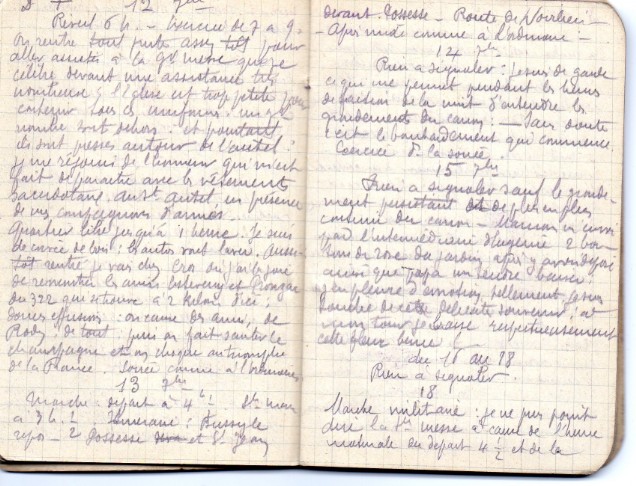 12 7bre
Réveil 6 h. - Exercice de 7 à 9.
On rentre tout juste assez tôt pour
aller assister à la Gd messe que je
célèbre devant une assistance très
nombreuse ; l'Eglise est trop petite pour
contenir tous ces uniformes : un gd
nombre sont dehors : et pourtant
ils sont pressés autour de l'autel :
je me réjouis de l'honneur qui m'est
fait de paraître avec les vêtements
sacerdotaux au St autel, en présence
de mes compagnons d'armes.
Quartier libre jusqu'à 1 heure. Je suis
de corvée de bois : d'autres vont laver. Aussi-
tôt rentré je vais chez où j'ai la joie
de rencontrer les amis et
du 322 qui se trouve à 2 kilom. d'ici :
douces effusions : on cause des amis, de
Rodez, de tout : puis on fait sauter le
champagne et on choque au triomphe
de la France. Soirée comme à l'ordinaire
13 7bre
Marche : départ à 4 h ½
à 3 h. ½ Itinéraire : Bussy le
repos - Possesse et St Jean
devant Possesse - Route de
Après midi comme à l'ordinaire -
14 7bre
Rien à signaler : je suis de garde
ce qui me permet pendant les heures
de faction de la nuit d'entendre les
grondements du canon : - Sans doute
c'est le bombardement qui commence.
Exercice de la soirée.
15 7bre
Rien à signaler sauf le gronde-
ment persistant et de plus en plus
continu du canon - Maman m'envoie
par l'intermédiaire d'Eugénie 2 bou-
tons de rose du jardin après y avoir déposé
ainsi que papa un tendre baiser :
j'en pleure d'émotion, tellement je suis
touché de cette délicate souvenir ; et
à mon tour je baise respectueusement
cette fleur bénie !
du 16 au 18
Rien à signaler.
18
Marche militaire : je ne puis point
dire la Ste messe à cause de l'heure
matinale du départ 4 ½ et de la